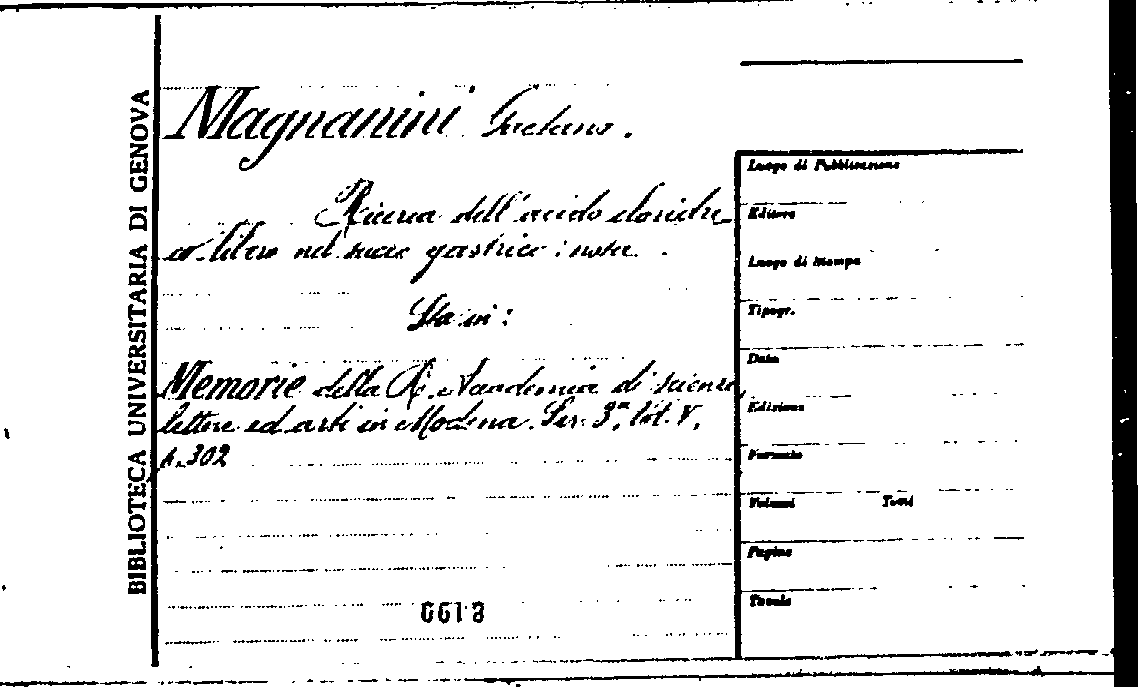 BIBLIOTECA UNIVERSITARIA DI GENOVA
Magnanini Gaetano.
Ricerca dell'acido cloridri-
co libero nel succo gastrico: nota.
Sta in:
Memorie della R. Accademia di scienze,
lettere ed arti in Modena. Ser. 3ª, Vol. V,
p. 302
0613
Luogo di Pubblicazione
Editore
Luogo di Stampa
Tipogr.
Data
Edizione
Formato
Volumi Tomi
Pagine
Tavole